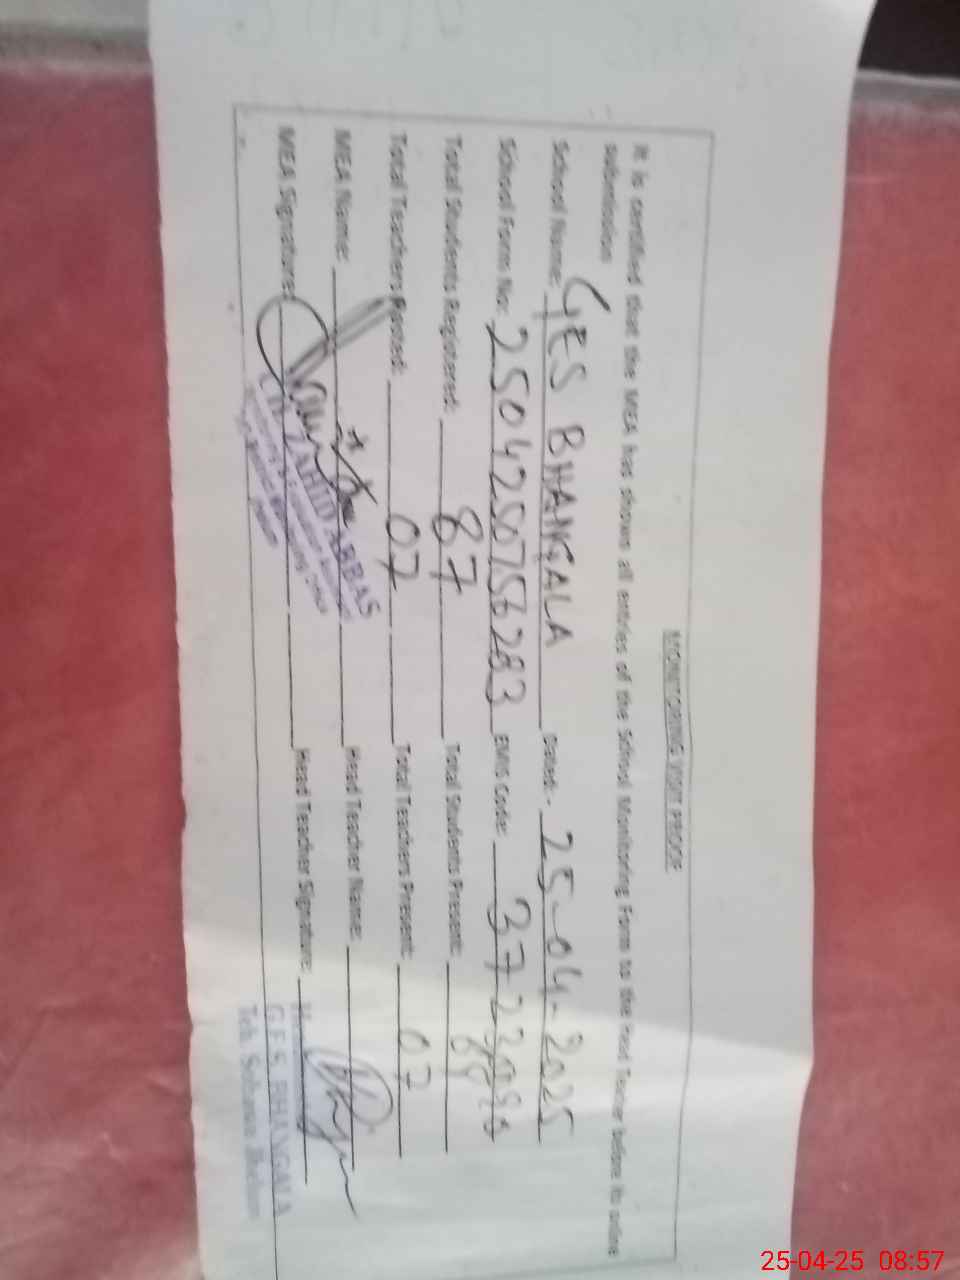 MONITORING VISIT PROOF
It is certified that the MEA has shown all entries of the School Monitoring Form to the Head Teacher before its online
submission
School Name: GES BHANGALA Dated:- 25-04-2025
School Form No: 2504250756283 EMIS Code: 37
Total Students Registered: 87 Total Students Present:
Total Teachers Posted: 07 Total Teachers Present: 07
MEA Name: Head Teacher Name:
MEA Signature: Head Teacher Signature:
ZAHID ABBAS
G.E.S. BHANGALA
Teh. Sohawa Jhelum
25-04-25 08:57